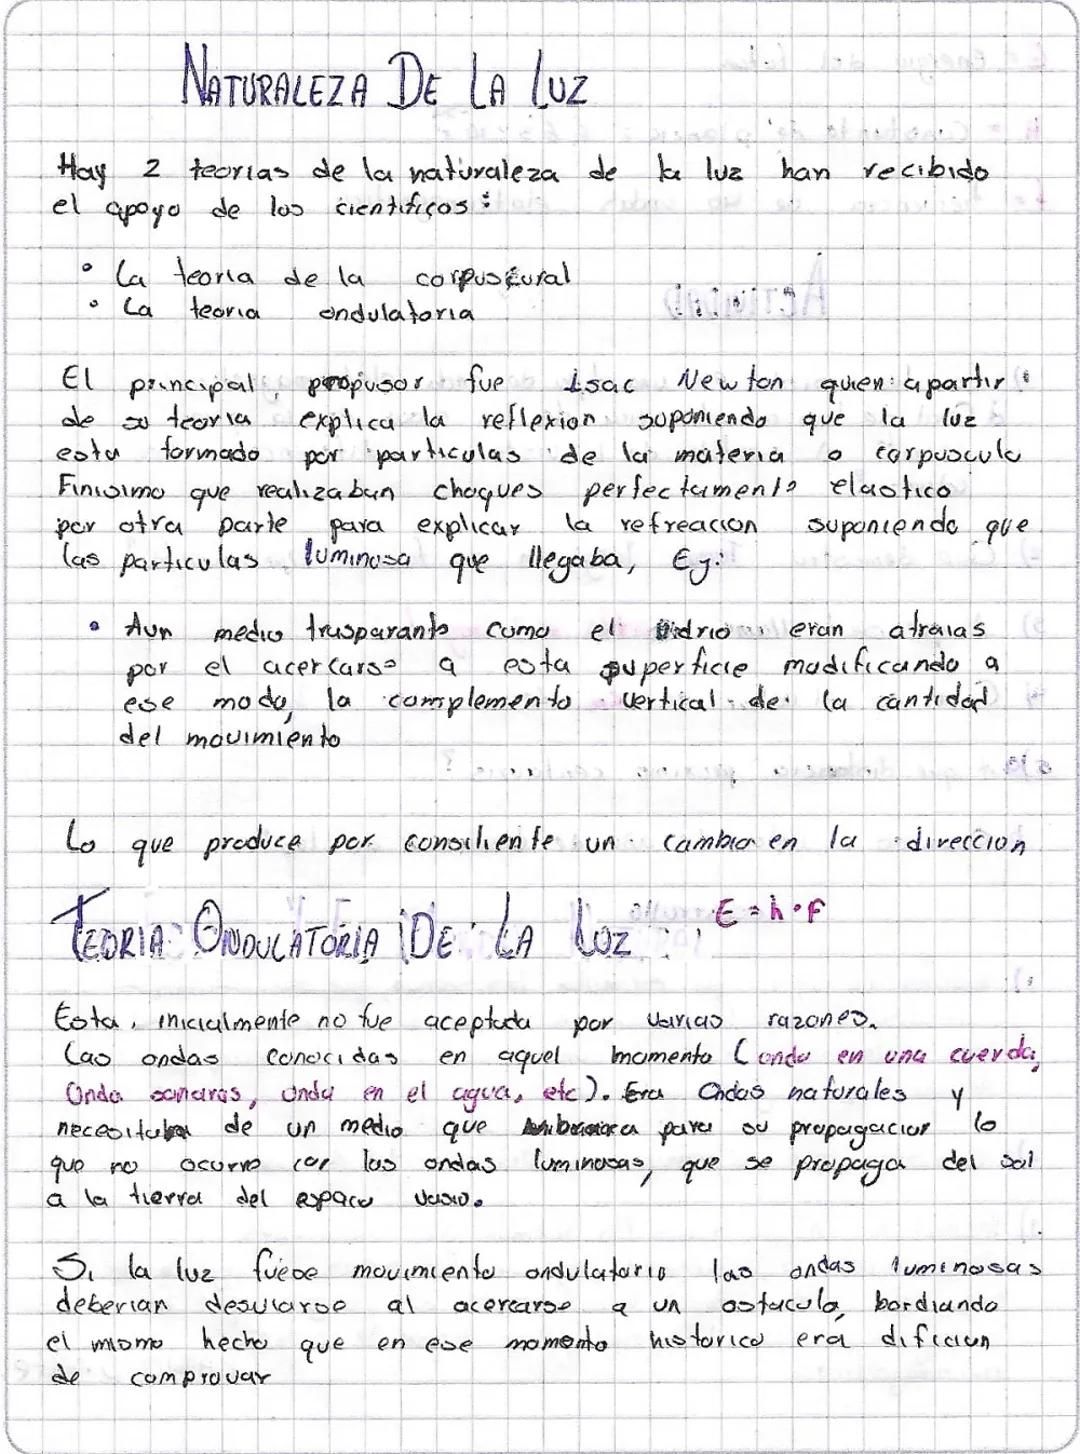 NATURALEZA DE LA LUZ
Hay 2 teorias de la naturaleza de la luz han recibido
el apoyo de los cientificos:
• La teoria de la corpuscural
• La teoria ondulatoria
El principal propusor fue Isac Newton quien apartir
de su teoria explica la reflexion suponiendo que la luz
esta formado por particulas de la materia o corpusculo
Finisimo que realizaban choques perfectamente elastico
por otra parte para explicar la refreacion suponiendo que
las particulas luminosa que llegaba, Ej:
• Aun medio trasparante como el vidrio eran atraias
por el acercarse a esta superficie modificando a
ese modo, la complemento vertical de la cantidad
del movimiento
Lo que produce por consiliente un cambio en la direccion
TEORIA ONDULATORIA DE LA LUZ: E = h · F
Esta, inicialmente no fue aceptada por varias razones.
Las ondas conocidas en aquel momento (onda en una cuerda,
Onda sonaras, onda en el agua, etc). Era Ondas naturales y
necesitaba de un medio que para su propagacior lo
que no ocurre cor las ondas luminosas, que se propaga del sol
a la tierra del espacio vasio.
Si la luz fuese movimiento ondulatorio las ondas luminosas
deberian desviarse al acercarse a un ostaculo, bordiando
el mismo hecho que en ese momento historico era dificiun
de comprovar